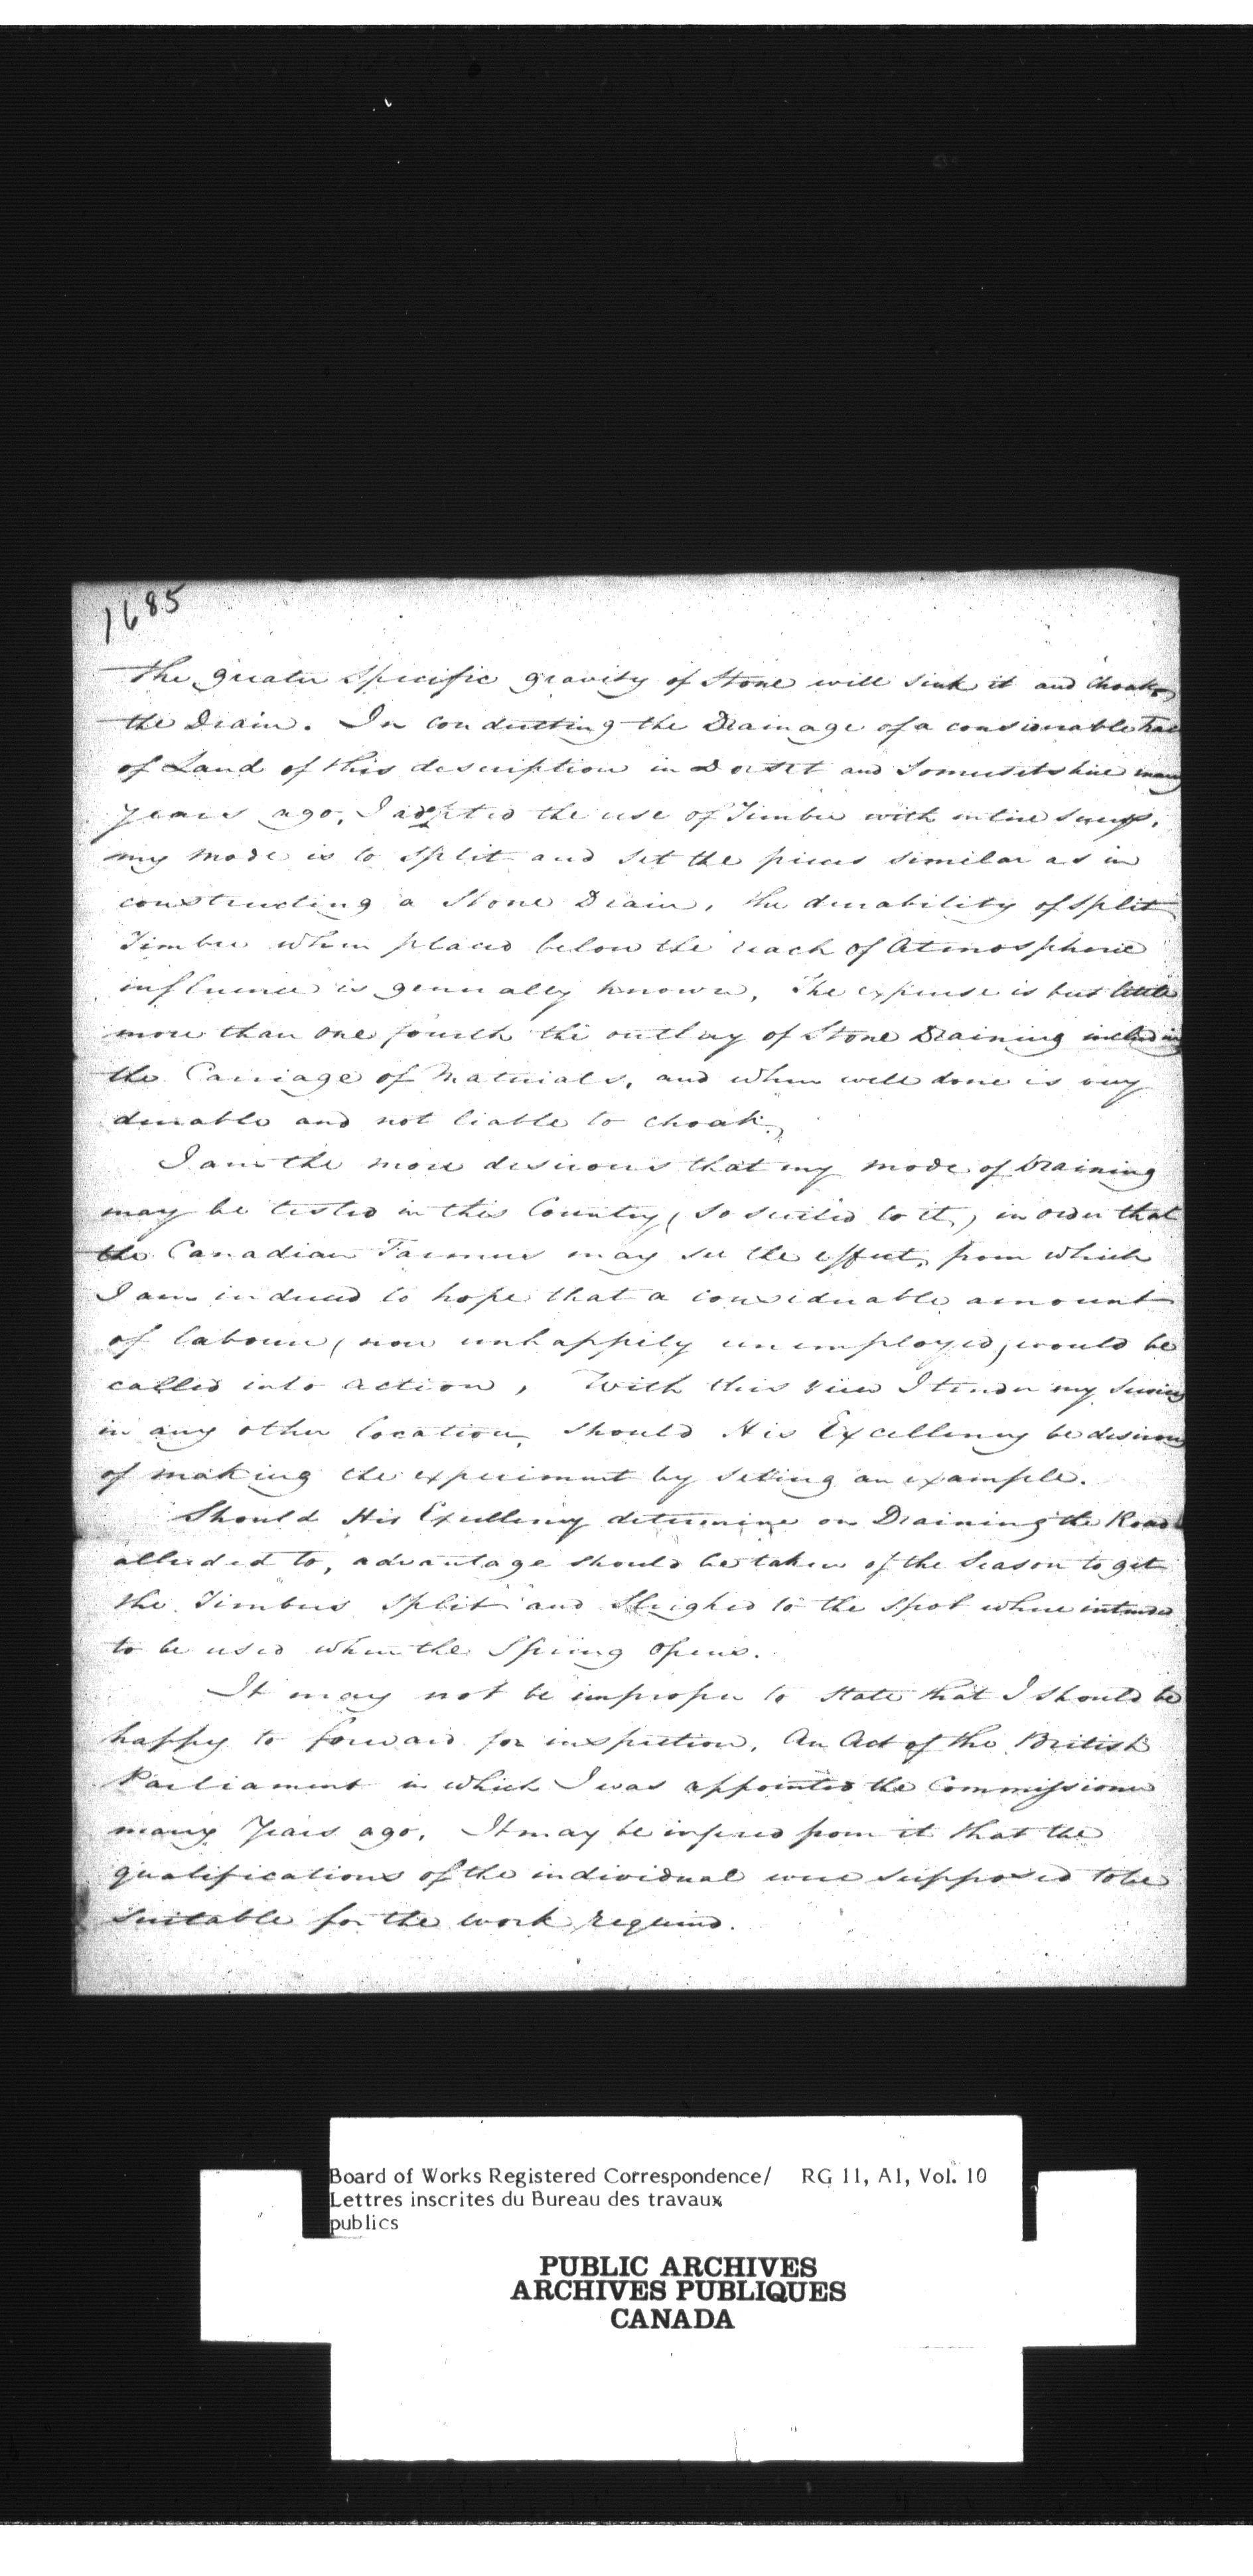 1685
the greater Specific gravity of Stone will sink it and Choak
the Drain. In conducting the Drainage of a considerable trac
of Land of this description in Dorset and Somersetshire many
Years ago, I adopted the use of Timber with entire success.
my mode is to split and set the pieces similar as in
constructing a Stone Drain, the durability of Split
Timber when placed below the reach of Atmospheric
influence is generally known, The expense is but little
more than one fourth the outlay of Stone Draining including
the Carriage of Materials, and when well done is very
durable and not liable to choak,
I am the more desirous that my mode of Draining
may be tested in this Country, (so suited to it,) in order that
the Canadian Farmers may see the effect, from which
I am induced to hope that a considerable amount
of labour, (now unhappily unemployed) would be
called into action, With this view I tender my Services
in any other location, should His Excellency be desirous
of making the experiment by setting an example.
Should His Excellency determine on Draining the Road
alluded to, advantage should be taken of the Season to get
the Timbers Split and Sleighed to the Spot where intended
to be used when the Spring opens.
It may not be improper to state that I should be
happy to forward for inspection, An Act of the British
Parliament in which I was appointed the Commissioner
many Years ago. It may be infered from it that the
qualifications of the individual were supposed to be
suitable for the work required.
Board of Works Registered Correspondence/ RG 11, A1, Vol. 10
Lettres inscrites du Bureau des travaux
publics
PUBLIC ARCHIVES
ARCHIVES PUBLIQUES
CANADA